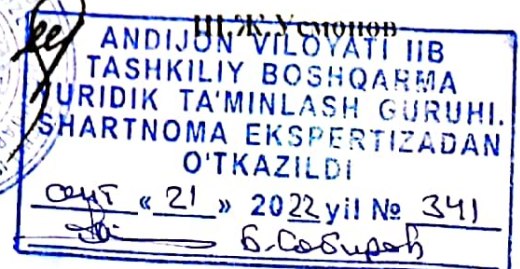 Ш.Ж.Усмонов
ANDIJON VILOYATI IIB
TASHKILIY BOSHQARMA
YURIDIK TA'MINLASH GURUHI.
SHARTNOMA EKSPERTIZADAN
O'TKAZILDI
сент « 21 » 2022 yil № 341
Б.Собиров